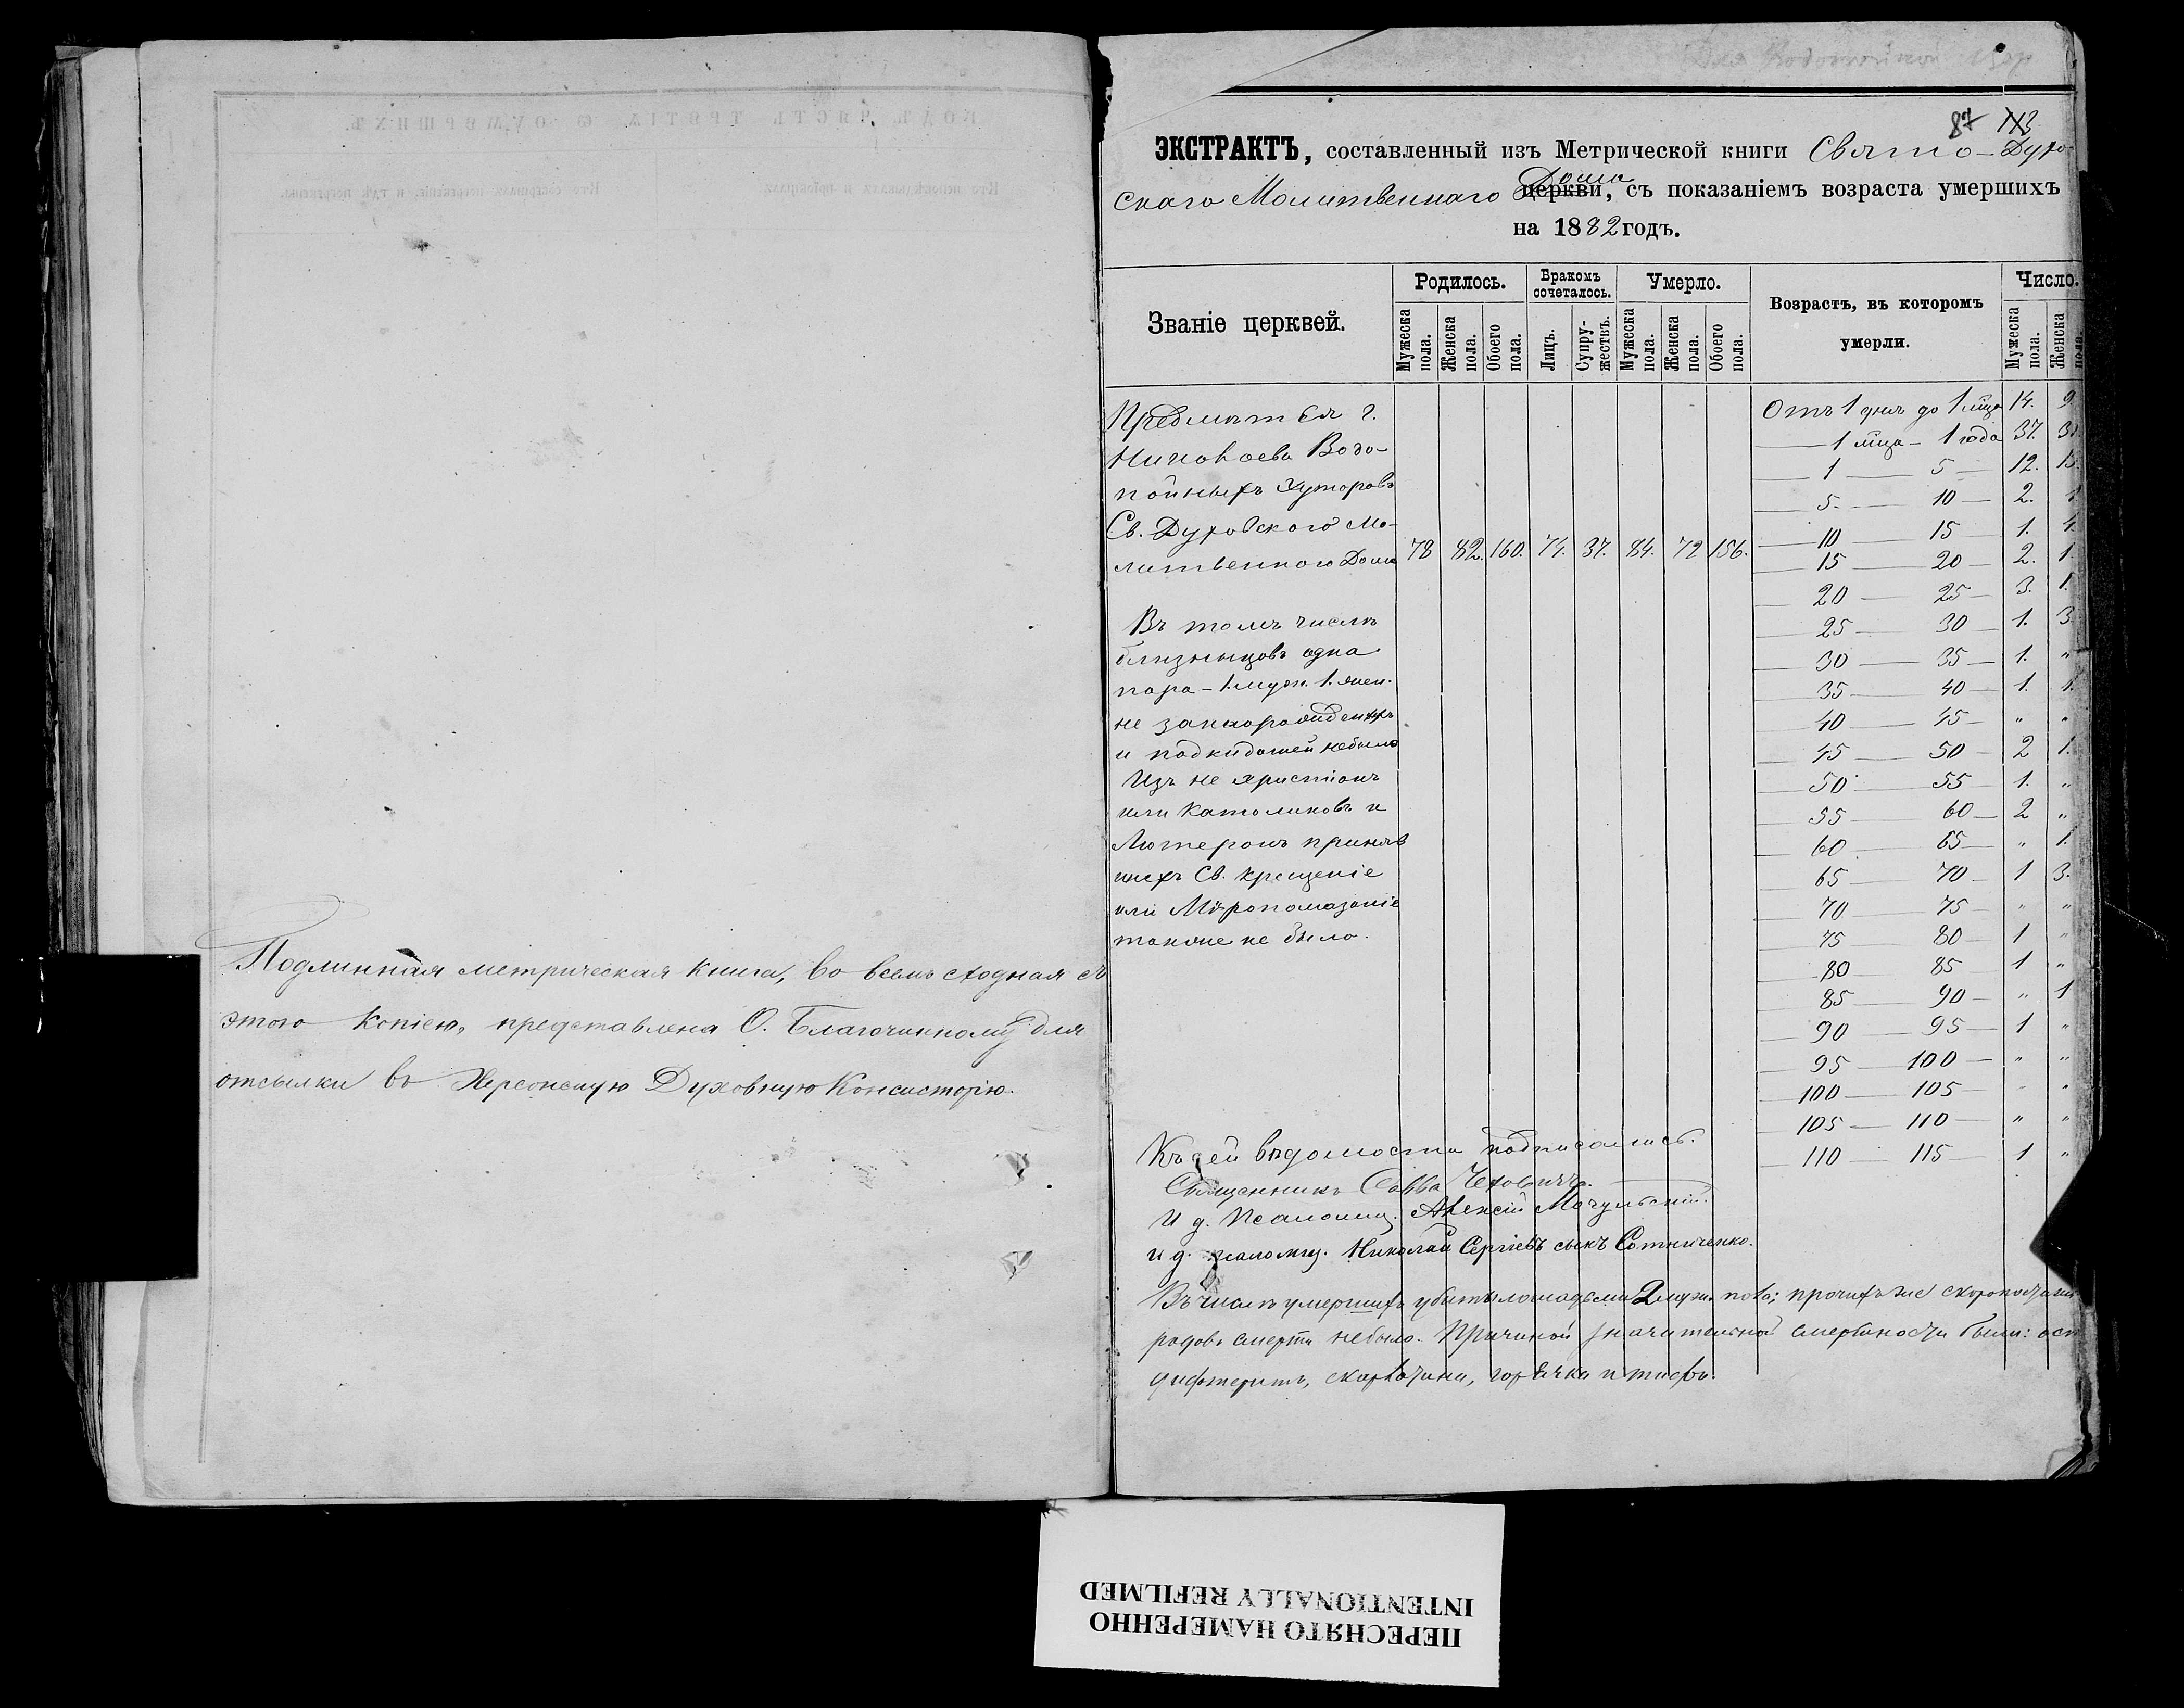 Подлинная метрическая книга, во всемъ сходная съ
этою копіею, представлена О. Благочинному для
отсылки въ Херсонскую Духовную Консисторію.
87 113
ЭКСТРАКТЪ, составленный изъ Метрической книги Свято-Духов
скаго Молитвеннаго Дома церкви, съ показаніемъ возраста умершихъ
на 1882 годъ.
Званіе церквей.
Родилось.
Бракомъ сочеталось.
Умерло.
Возрастъ, въ которомъ умерли.
Число.
Мужеска пола. Женска пола. Обоего пола. Лицъ. Супружествъ. Мужеска пола. Женска пола. Обоего пола. Мужеска пола. Женска пола.
Предмѣстья г.
Николаева Водо-
пойныхъ Хуторовъ
Св. Духовскаго Мо-
литвеннаго Дома 78 82. 160. 74. 37. 84. 72 156.
Въ томъ числѣ
близнецовъ одна
пара - 1. муж. 1. жен.
не законорожденныхъ
и подкидышей небыло
Изъ не христіанъ
или Католиковъ и
Лютеранъ приняв
шихъ Св. Крещеніе
или Мѵропомазаніе
также не было.
Отъ 1 дня до 1 мѣца 14. 9.
— 1 мѣца — 1 года 37. 31.
— 1 — 5 — 12. 15
— 5 — 10 — 2. 1.
— 10 — 15 — 1. 4.
— 15 — 20 — 2. 1.
— 20 — 25 — 3. 1.
— 25 — 30 — 1. 3
— 30 — 35 — 1. "
— 35 — 40 — 1. 1.
— 40 — 45 — " "
— 45 — 50 — 2 1.
— 50 — 55 — 1. "
— 55 — 60 — 2 "
— 60 — 65 — " 1.
— 65 — 70 — 1 3.
— 70 — 75 — " "
— 75 — 80 — 1 "
— 80 — 85 — 1 "
— 85 — 90 — " 1
— 90 — 95 — 1 "
— 95 — 100 — " "
— 100 — 105 — " "
— 105 — 110 — " "
— 110 — 115 — 1 "
Къ сей вѣдомости подписались.
Священникъ Савва Чехович.
И д. Псаломщ. Алексій Мачульскій.
и д. псаломщ. Николай Сергіевъ сынъ Сотниченко.
Въ числѣ умершихъ убиты лошадьми 2 муж. пола; прочихъ же скоропостиж
родовъ смерти небыло. Причиной значительной смертности были: осп
дифтеритъ, скарлатина, горячка и тифъ.
ПЕРЕСНЯТО НАМЕРЕННО
INTENTIONALLY REFILMED